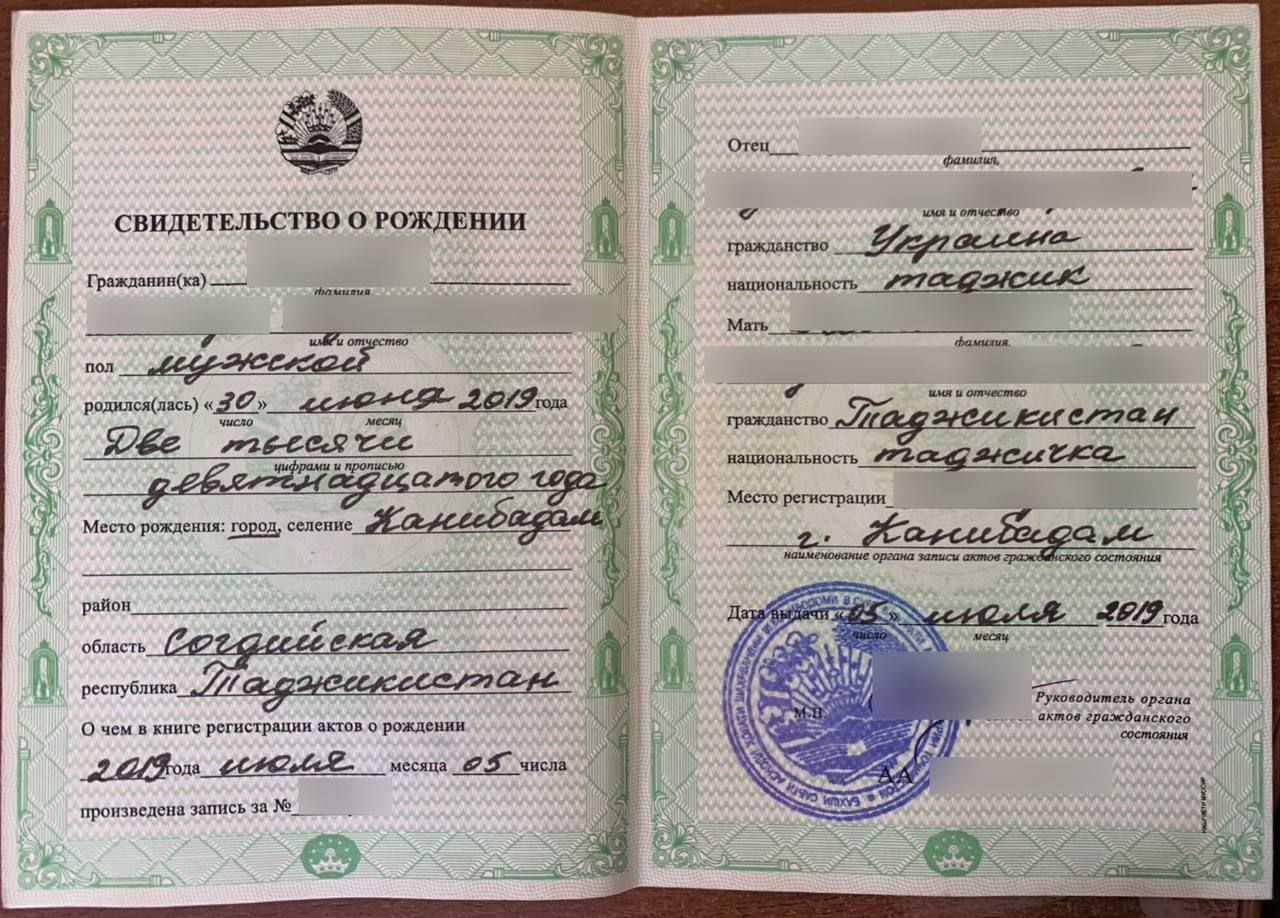 СВИДЕТЕЛЬСТВО О РОЖДЕНИИ
Гражданин(ка)
фамилия
имя и отчество
пол мужской
родился(лась) «30» июня 2019 года
число месяц
Две тысячи
цифрами и прописью
девятнадцатого года
Место рождения: город, селение Канибадам
район
область Согдийская
республика Таджикистан
О чем в книге регистрации актов о рождении
2019 года июля месяца 05 числа
произведена запись за №
Отец
фамилия,
имя и отчество
гражданство Украина
национальность таджик
Мать
фамилия,
имя и отчество
гражданство Таджикистан
национальность таджичка
Место регистрации
г. Канибадам
наименование органа записи актов гражданского состояния
Дата выдачи «05» июля 2019 года
число месяц
М.П.
Руководитель органа
актов гражданского
состояния
АА